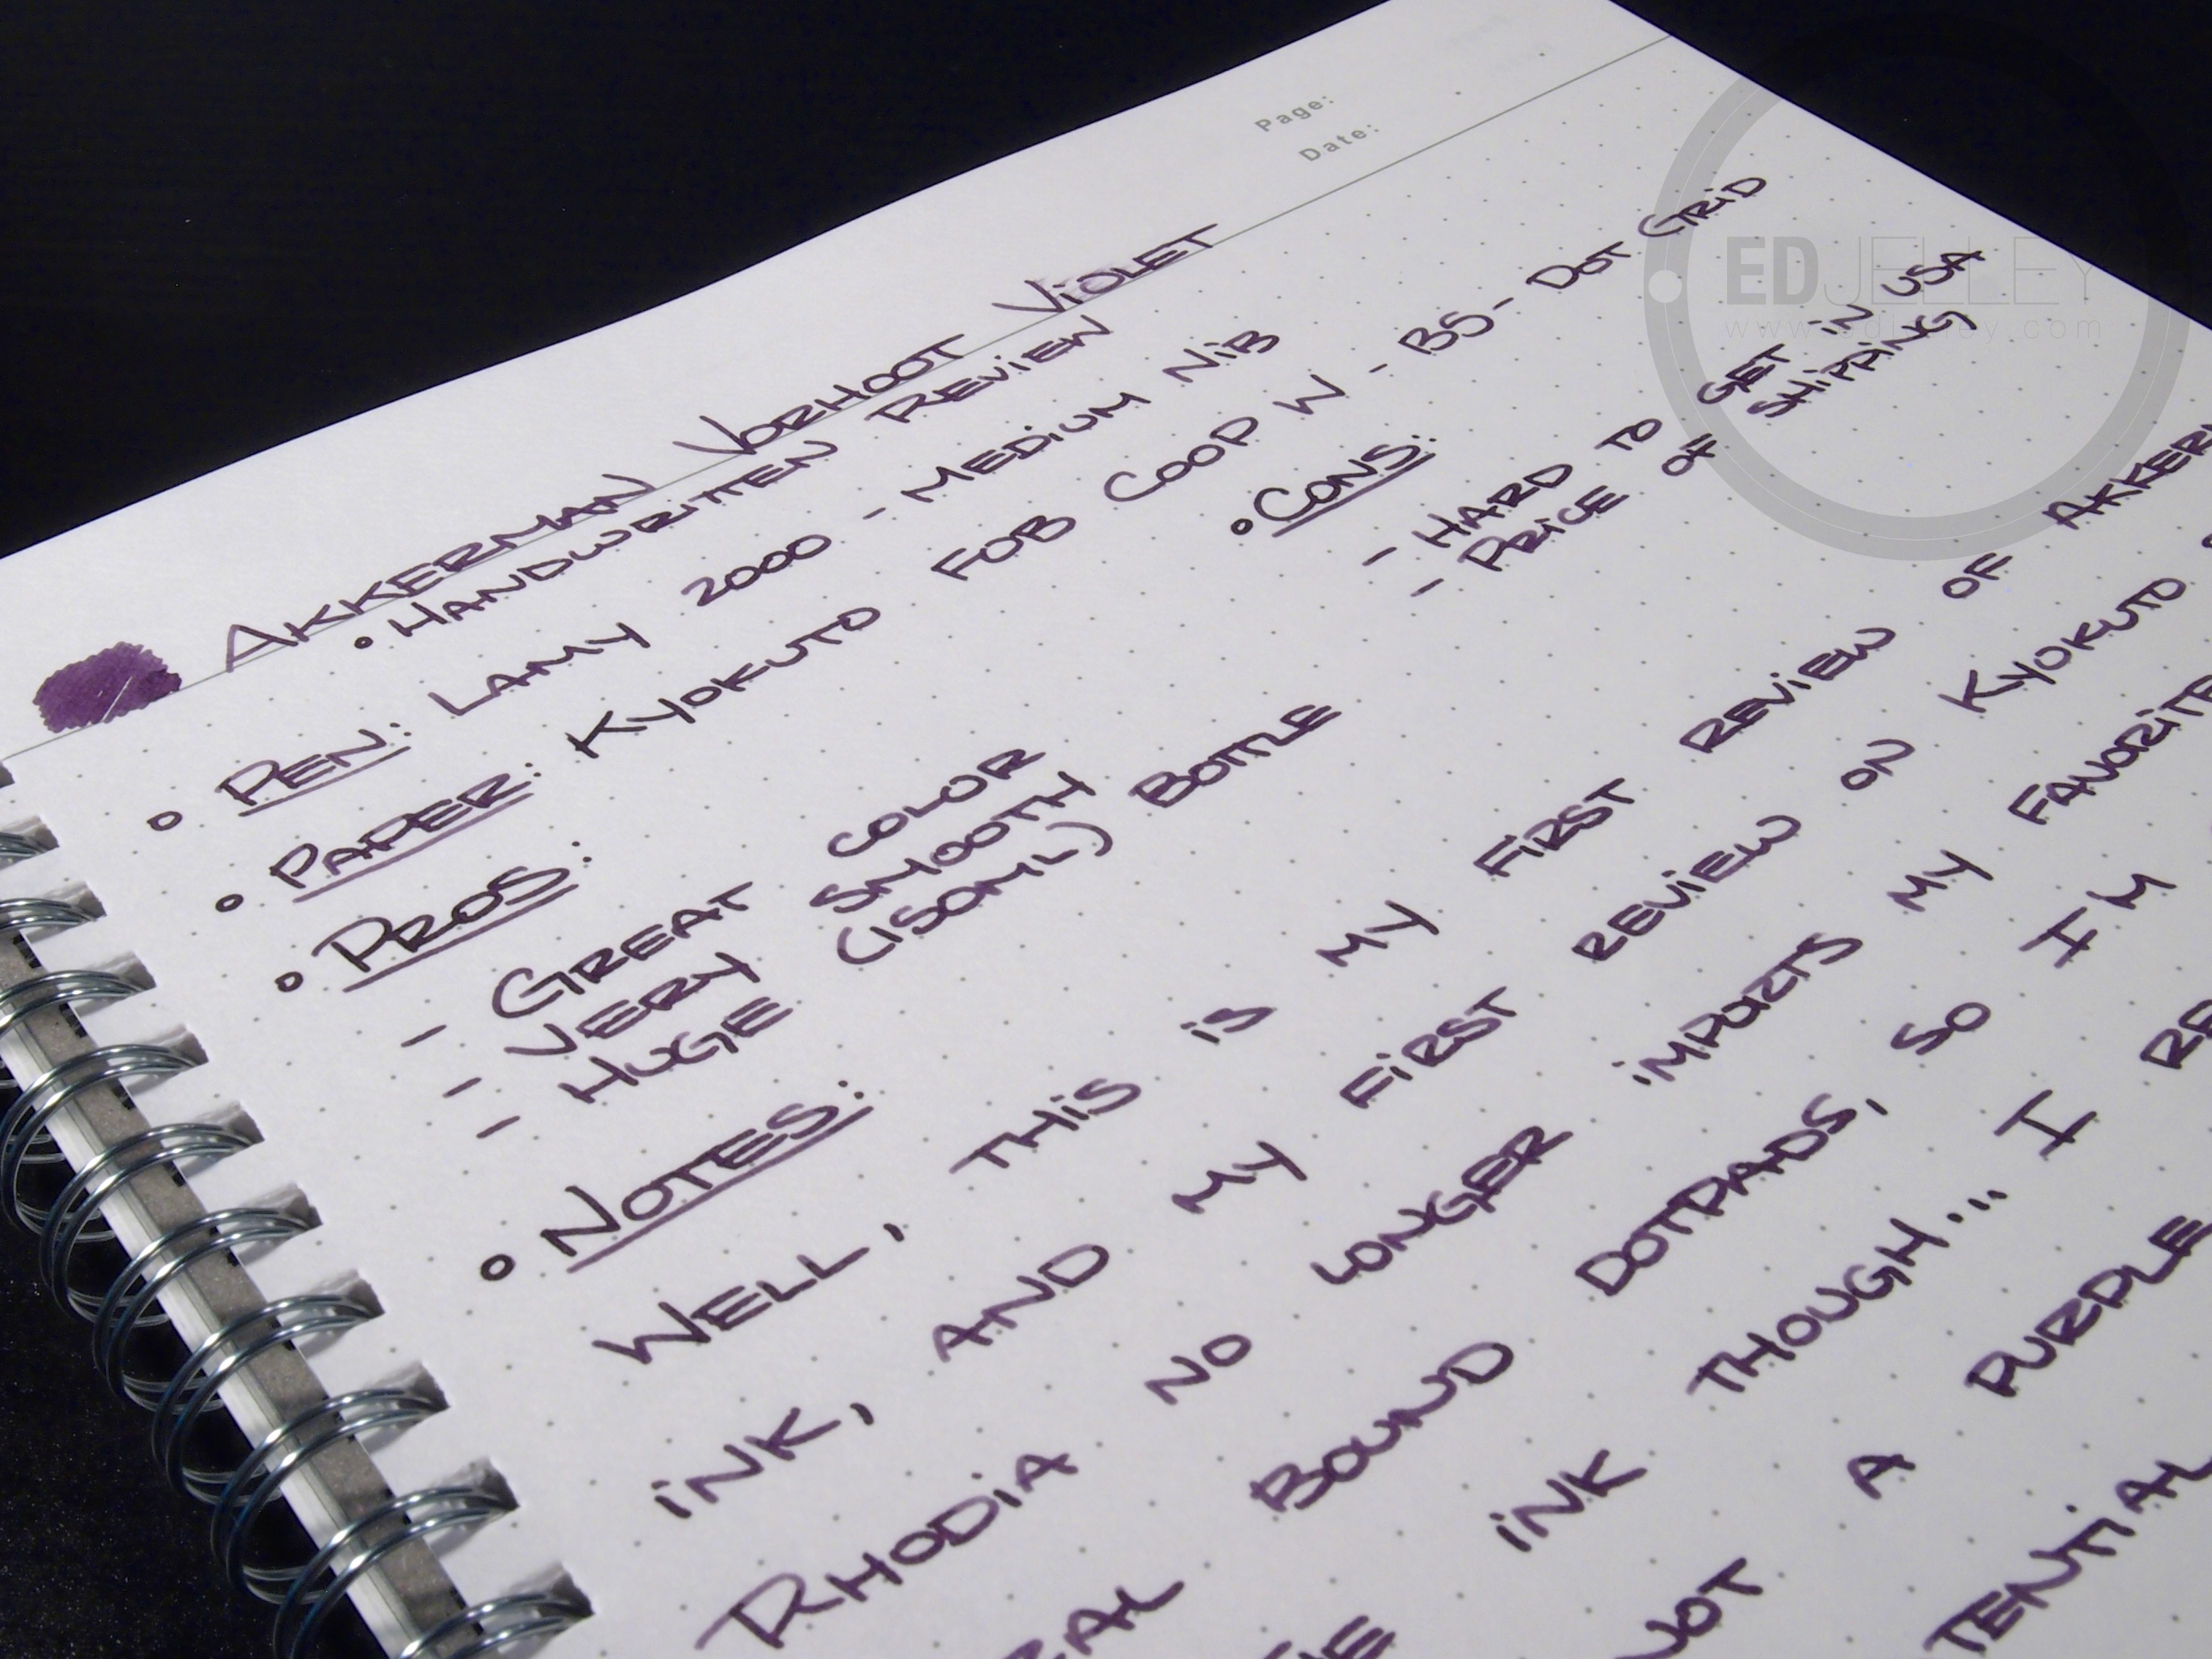 Page:
Date:
AKKERMAN VORHOOT VIOLET
• HANDWRITTEN REVIEW
• PEN: LAMY 2000 - MEDIUM NIB
• PAPER: KYOKUTO FOB COOP W - B5 - DOT GRID
• PROS:
- GREAT COLOR
- VERY SMOOTH
- HUGE (150ML) BOTTLE
• CONS:
- HARD TO GET IN USA
- PRICE OF SHIPPING
• NOTES:
WELL, THIS IS MY FIRST REVIEW OF AKKER
INK, AND MY FIRST REVIEW ON KYOKUTO
RHODIA NO LONGER IMPORTS MY FAVORITE
BOUND DOTPADS, SO H M
INK THOUGH... I RE
NOT A PURPLE
EDJELLEY
www.edjelley.com